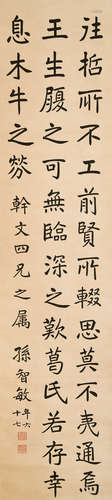 往哲所不工前賢所輟思莫不夷通焉
王生履之可無臨深之歎葛氏若存幸
息木牛之勞
幹文四兄之属 孫智敏年六十七